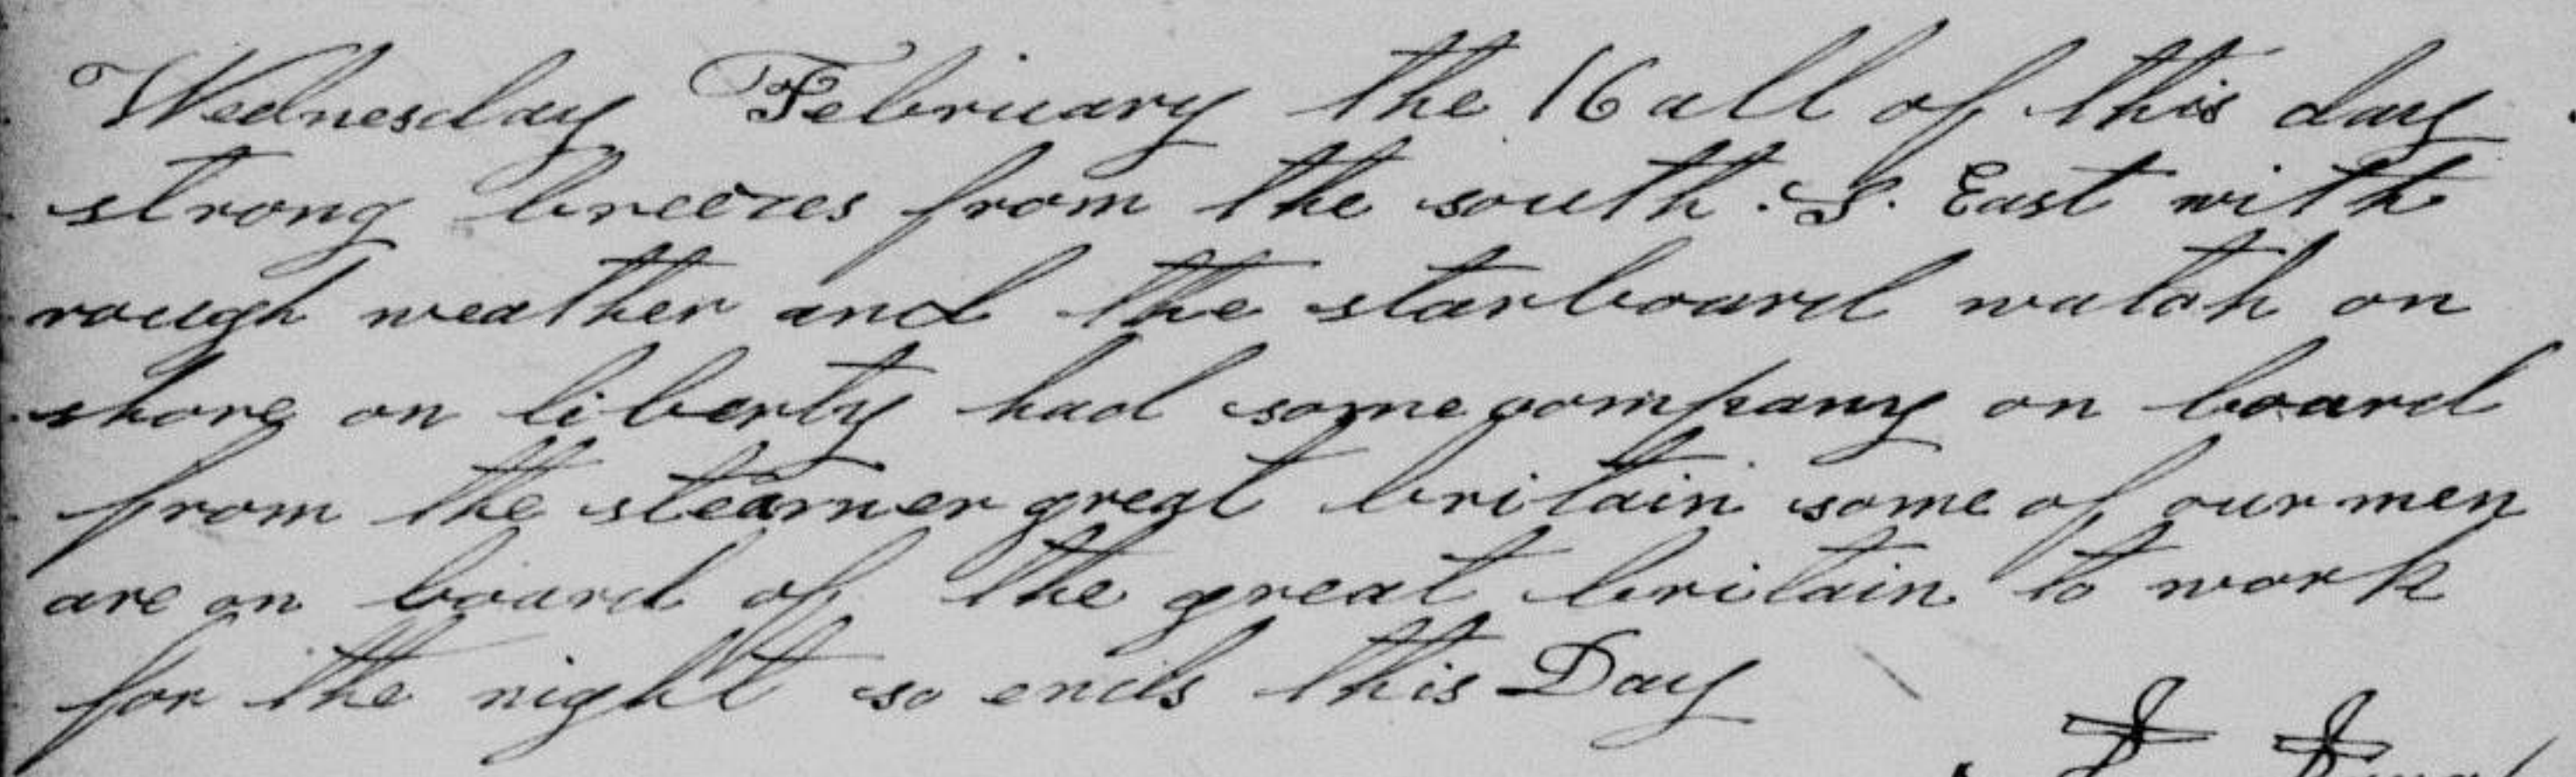 Wednesday February the 16 all of this day
strong breezes from the south. S. East with
rough weather and the starboard watch on
shore on liberty had some company on board
from the steamer great britain some of our men
are on board of the great britain to work
for the night so ends this Day